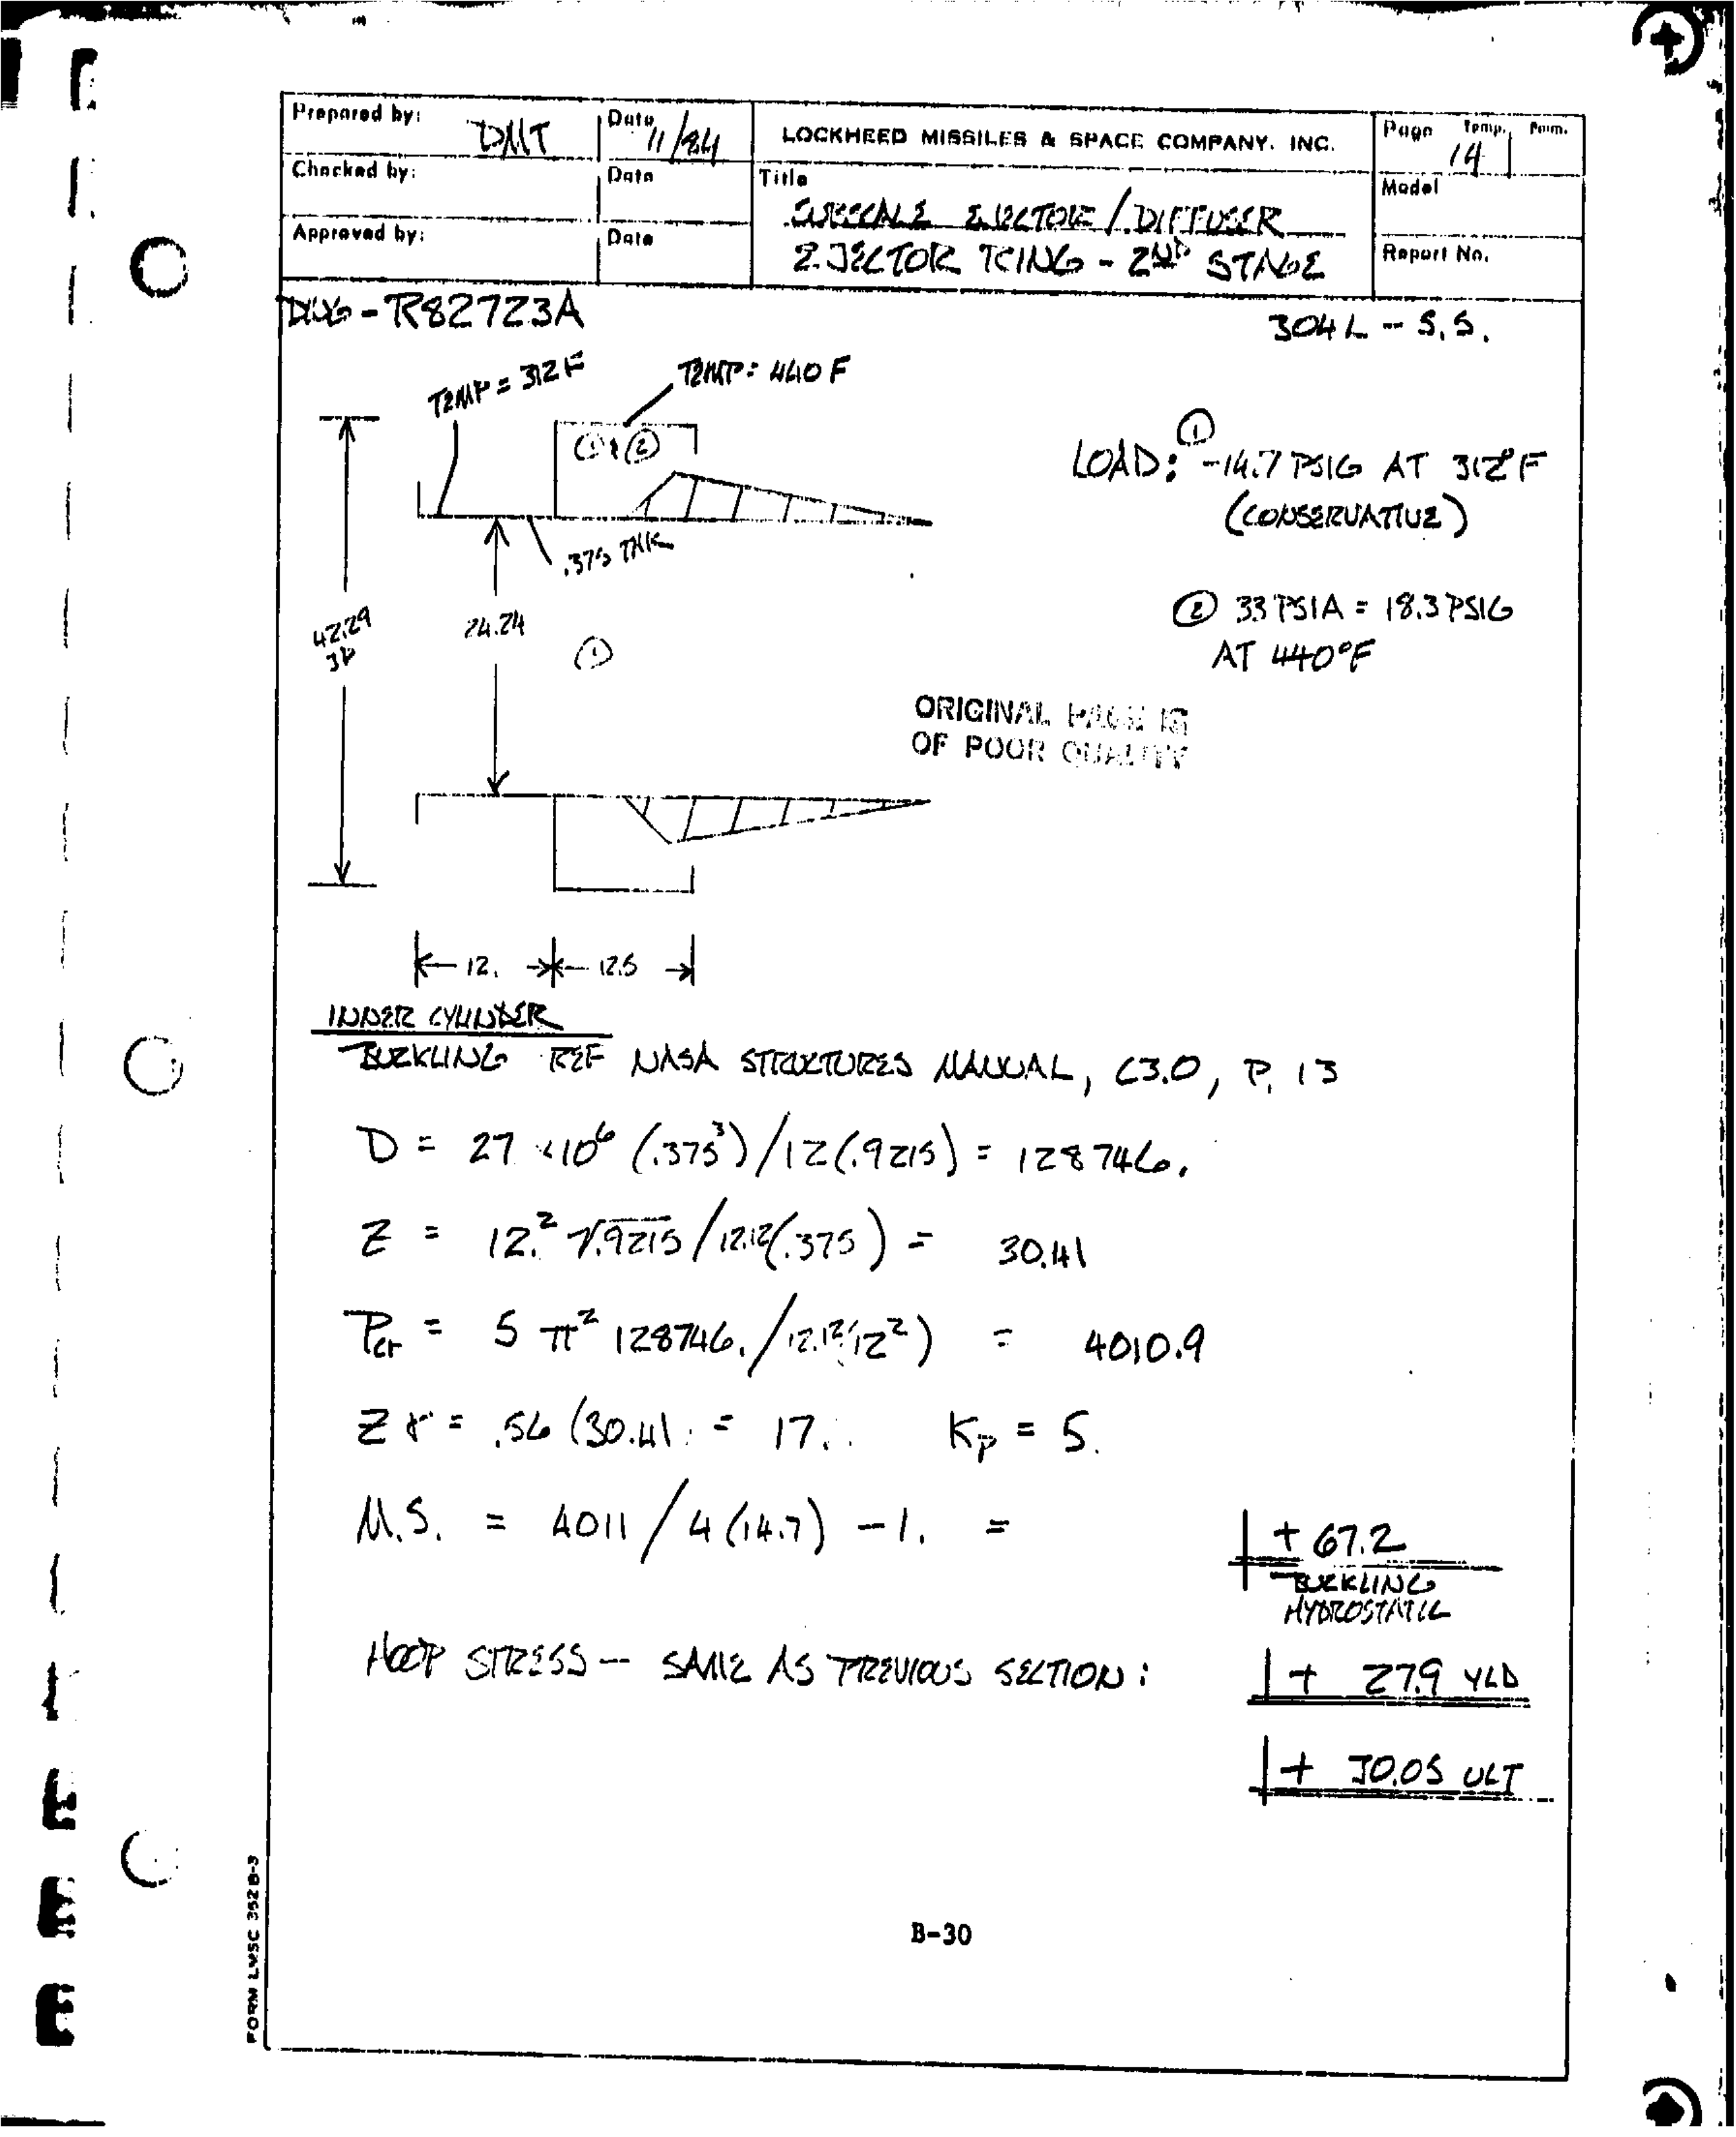 Prepared by: DMT
Date 11/84
LOCKHEED MISSILES & SPACE COMPANY, INC.
Page Temp. Perm.
14
Checked by:
Date
Title
Model
SUBSCALE EJECTOR / DIFFUSER
Approved by:
Date
EJECTOR RING - 2ND STAGE
Report No.
DWG - R82723A
304L - S.S.
TEMP = 312 F
TEMP: 440 F
① & ②
LOAD: ① -14.7 PSIG AT 312°F
(CONSERVATIVE)
.375 THK
② 33 PSIA = 18.3 PSIG
AT 440°F
42.29
24.24
①
ORIGINAL PAGE IS
OF POOR QUALITY
12. 12.5
INNER CYLINDER
BUCKLING REF NASA STRUCTURES MANUAL, C3.0, P. 13
D = 27 ×10⁶ (.375³)/12(.9215) = 128746.
Z = 12.² √.9215 /12.12(.375) = 30.41
Pcr = 5 π² 128746. /12.12(12²) = 4010.9
Z γ = .56 (30.41) = 17. Kp = 5.
M.S. = 4011 / 4 (14.7) - 1. = + 67.2
BUCKLING
HYDROSTATIC
HOOP STRESS -- SAME AS PREVIOUS SECTION: + 27.9 YLD
+ 30.05 ULT
B-30
FORM LMSC 352B-3